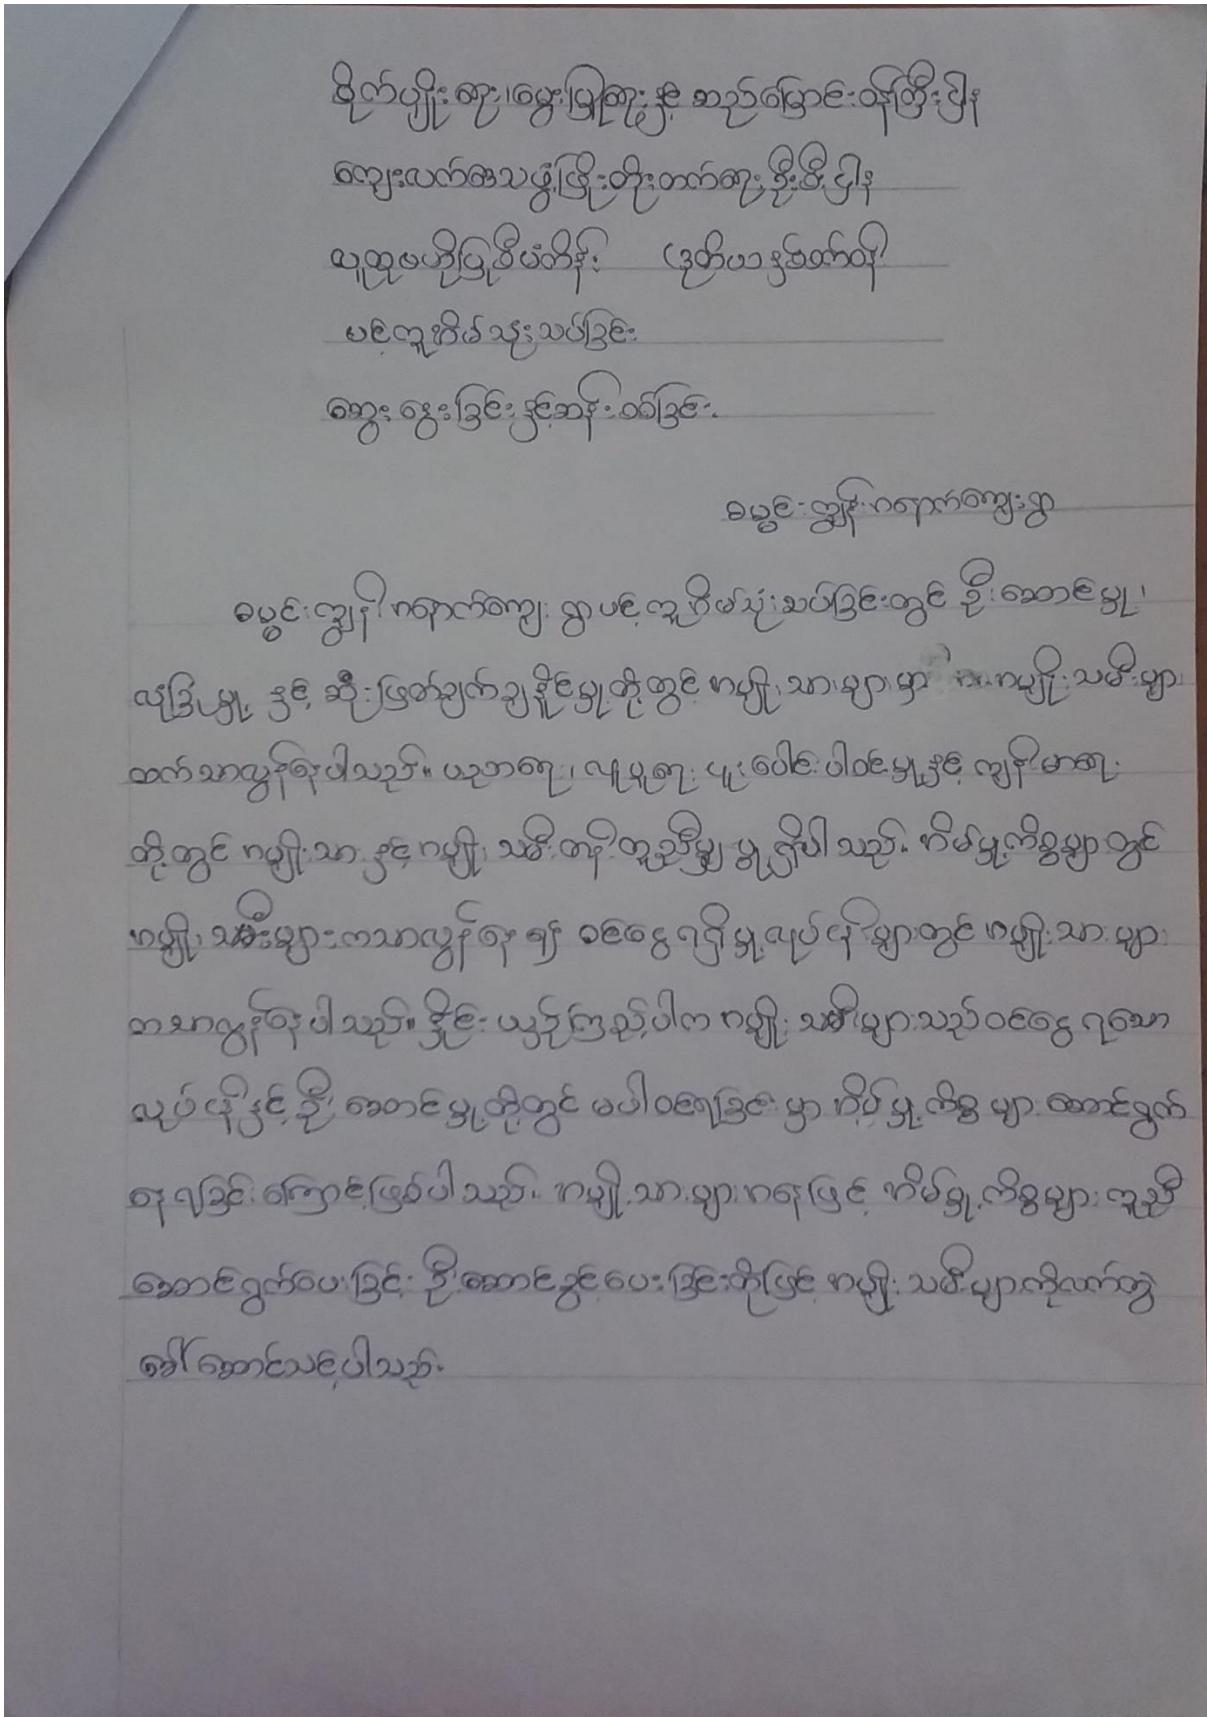 စိုက်ပျိုးရေး၊မွေးမြူရေးနှင့် ဆည်မြောင်းဝန်ကြီးဌာန
ကျေးလက်ဒေသဖွံ့ဖြိုးတိုးတက်ရေးဦးစီးဌာန
လူထုဗဟိုပြုစီမံကိန်း (ဒုတိယနှစ်ပတ်ဝန်း)
ပင့်ကူအိမ်သုံးသပ်ခြင်း
ဆွေးနွေးခြင်းနှင့်ဆန်းစစ်ခြင်း
စမ္ပင်းကျွန်းအနောက်ကျေးရွာ
စမ္ပင်းကျွန်းအနောက်ကျေးရွာပင့်ကူအိမ်သုံးသပ်ခြင်းတွင် ဦးဆောင်မှု၊
လုံခြုံမှု နှင့် ဆုံးဖြတ်ချက်ချနိုင်မှုတို့တွင် အမျိုးသားများမှာ အမျိုးသမီးများ
ထက်သာလွန်နေပါသည်။ ပညာရေး၊ လူမှုရေး ပူးပေါင်းပါဝင်မှုနှင့် ကျန်းမာရေး
တို့တွင် အမျိုးသားနှင့် အမျိုးသမီးတန်းတူညီမျှမှုရှိပါသည်။ အိမ်မှုကိစ္စများတွင်
အမျိုးသမီးများကသာလွန်နေ၍ ဝင်ငွေရရှိမှုလုပ်ငန်းများတွင် အမျိုးသားများ
ကသာလွန်နေပါသည်။ နှိုင်းယှဉ်ကြည့်ပါက အမျိုးသမီးများသည်ဝင်ငွေရသော
လုပ်ငန်းနှင့် ဦးဆောင်မှုတို့တွင် မပါဝင်ရခြင်းမှာ အိမ်မှုကိစ္စများဆောင်ရွက်
နေရခြင်းကြောင့်ဖြစ်ပါသည်။ အမျိုးသားများအနေဖြင့် အိမ်မှုကိစ္စများကူညီ
ဆောင်ရွက်ပေးခြင်း ဦးဆောင်ခွင့်ပေးခြင်းတို့ဖြင့် အမျိုးသမီးများကိုလက်တွဲ
ခေါ်ဆောင်သင့်ပါသည်။